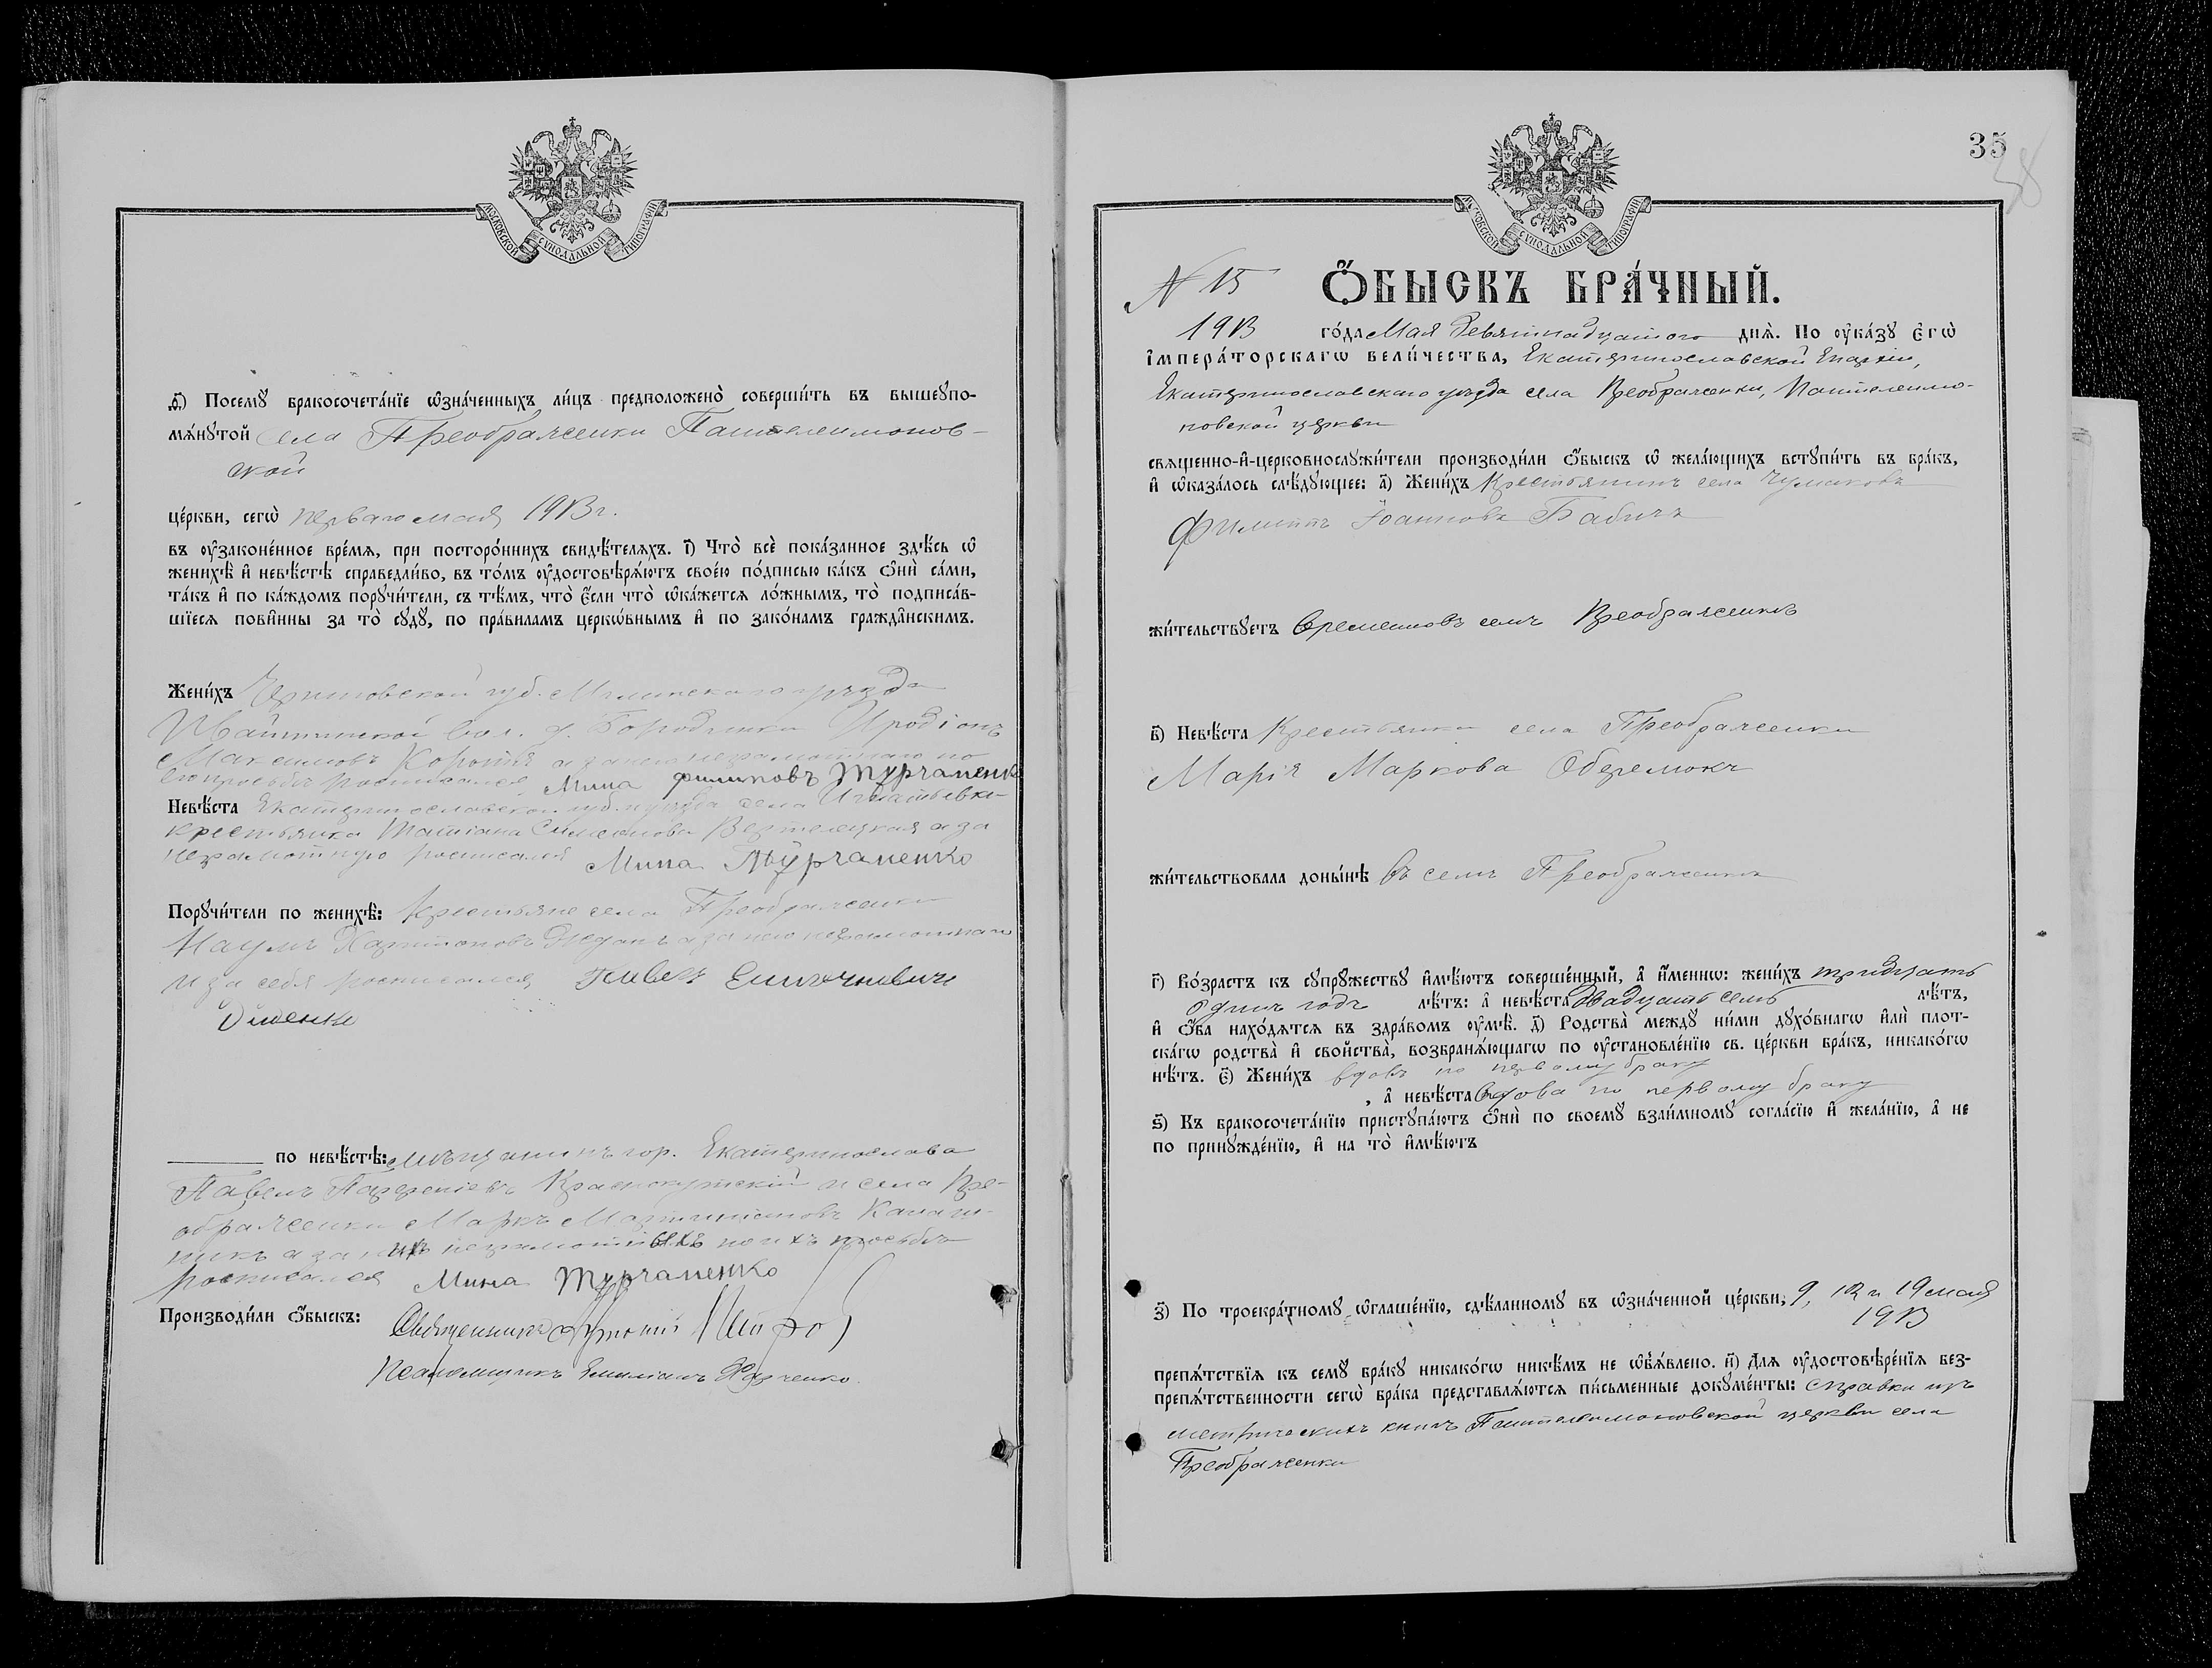 МОСКОВСКОЙ СУНОДАЛЬНОЙ ТИПОГРАФІИ
ѳ҃) Посемꙋ̀ бракосочета́нїе ѡ҆зна́ченныхъ ли́цъ предположено̀ соверши́ть въ вышеꙋпо-
мѧ́нꙋтой села Преображенки Пантелеимонов-
ской
це́ркви, сегѡ̀ перваго мая 1913 г.
въ ᲂу҆законе́нное вре́мѧ, при посторо́ннихъ свидѣ́телѧхъ. і҃) Что̀ всѐ пока́занное здѣ́сь ѡ҆
женихѣ̀ и҆ невѣ́стѣ справедли́во, въ то́мъ ᲂу҆достовѣрѧ́ютъ свое́ю по́дписью ка́къ ѻ҆нѝ са́ми,
та́къ и҆ по ка́ждомъ порꙋчи́тели, съ тѣ́мъ, что̀ є҆́сли что̀ ѡ҆ка́жетсѧ ло́жнымъ, то̀ подписа́в-
шїесѧ пови́нны за то̀ сꙋдꙋ̀, по пра́виламъ церко́внымъ и҆ по зако́намъ гражда̑нскимъ.
Жени́хъ Черниговской губ. Мглинскаго уѣзда
вол. д. Иродіонъ
Максимовъ а за него неграмотнаго по
его просьбѣ росписался Мина Филиповъ Турчаненко
Невѣ́ста Екатеринославской губ. и уѣзда села Игнатьевки
крестьянка Татіана Симеонова а за
неграмотную росписался Мина Турчаненко
Порꙋчи́тели по женихѣ̀: Крестьяне села Преображенки
Наумъ Харитоновъ а за него неграмотнаго
и за себя росписался Павелъ
по невѣ́стѣ: мѣщанинъ гор. Екатеринослава
Павелъ Парфеніевъ Краснокутскій и села Пре-
ображенки Маркъ
а за нихъ неграмотныхъ по ихъ просьбѣ
росписался Мина Турчаненко
Производи́ли ѻ҆́быскъ: Священникъ
Псаломщикъ Емиліанъ Харченко.
35
38
МОСКОВСКОЙ СУНОДАЛЬНОЙ ТИПОГРАФІИ
N 15 Ѻ҆́БЫСКЪ БРА́ЧНЫЙ.
1913 го́да Мая девятнадцатаго днѧ̀. По ᲂу҆ка́зꙋ Є҆гѡ̀
і҆мпера́торскагѡ вели́чества, Екатеринославской Епархіи,
Екатеринославскаго уѣзда села Преображенки, Пантелеимо-
новской церкви
свѧще́нно-и҆-церковнослꙋжи́тели производи́ли ѻ҆́быскъ ѡ҆ жела́ющихъ встꙋпи́ть въ бра́къ,
и҆ ѡ҆каза́лось слѣ́дꙋющее: а҃) Жени́хъ Крестьянинъ села Чумаковъ
Филиппъ Іоанновъ Бабичъ
жи́тельствꙋетъ временно въ селѣ Преображенкѣ
в҃) Невѣ́ста Крестьянка села Преображенки
Марія Маркова Оберемокъ
жи́тельствовала доны́нѣ въ селѣ Преображенкѣ
г҃) Во́зрастъ къ сꙋпрꙋ́жествꙋ и҆мѣ́ютъ соверше́нный, а҆ и҆́меннѡ: жени́хъ тридцать
одинъ годъ лѣ́тъ: а҆ невѣ́ста двадцать семь лѣ́тъ,
и҆ ѻ҆́ба нахо́дѧтсѧ въ здра́вомъ ᲂу҆мѣ̀. д҃) Родства̀ междꙋ̀ ни́ми дꙋхо́внагѡ и҆лѝ плот-
ска́гѡ родства̀ и҆ свойства̀, возбранѧ́ющагѡ по ᲂу҆становле́нїю св. це́ркви бра́къ, никако́гѡ
нѣ́тъ. є҃) Жени́хъ вдовъ по первому браку
, а҆ невѣ́ста вдова по первому браку
ѕ҃) Къ бракосочета́нїю пристꙋпа́ютъ ѻ҆нѝ по своемꙋ̀ взаи́мномꙋ согла́сїю и҆ жела́нїю, а҆ не
по принꙋжде́нїю, и҆ на то̀ и҆мѣ́ютъ
з҃) По троекра́тномꙋ ѡ҆глаше́нїю, сдѣ́ланномꙋ въ ѡ҆зна́ченной це́ркви, 9, 12 и 19 мая
1913
препѧ́тствїѧ къ семꙋ̀ бра́кꙋ никако́гѡ никѣ́мъ не ѡ҆б̾ѧ́влено. и҃) Длѧ ᲂу҆достовѣре́нїѧ без-
препѧ́тственности сегѡ̀ бра́ка представлѧ́ютсѧ пи́сьменные докꙋме́нты: справки изъ
метрическихъ книгъ Пантелеимоновской церкви села
Преображенки